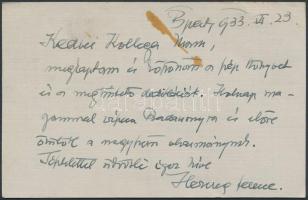 Bpest, 933. VI. 23.
Kedves Kolléga Uram,
megkaptam és köszönöm a szép könyvet
és a megtisztelő dedikációt. Holnap ma-
gammal viszem Badacsonyra és előre
örülök a nagyszerű olvasmánynak.
Tisztelettel üdvözli igaz híve
Herczeg Ferenc.